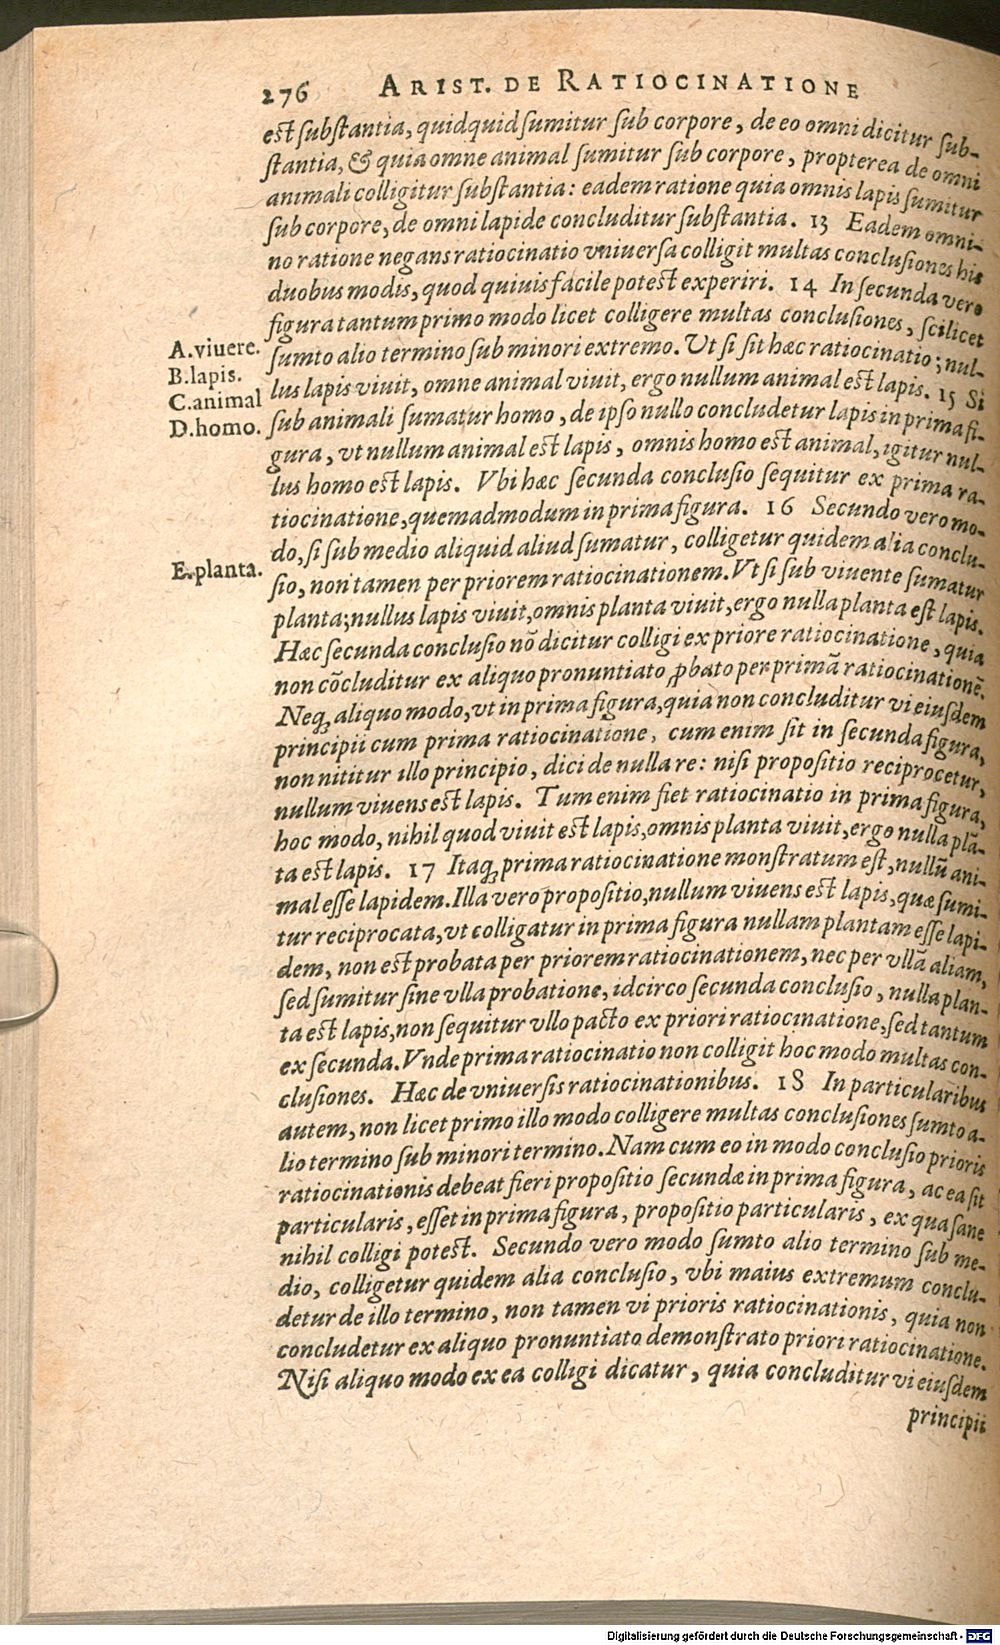 276 ARIST. DE RATIOCINATIONE
est substantia, quidquid sumitur sub corpore, de eo omni dicitur sub-
stantia, & quia omne animal sumitur sub corpore, propterea de omni
animali colligitur substantia: eadem ratione quia omnis lapis sumitur
sub corpore, de omni lapide concluditur substantia. 13 Eadem omni-
no ratione negans ratiocinatio vniuersa colligit multas conclusiones his
duobus modis, quod quiuis facile potest experiri. 14 In secunda vero
figura tantum primo modo licet colligere multas conclusiones, scilicet
A. viuere.
B. lapis.
C. animal
D. homo.
sumto alio termino sub minori extremo. Vt si sit hæc ratiocinatio; nul-
lus lapis viuit, omne animal viuit, ergo nullum animal est lapis. 15 Si
sub animali sumatur homo, de ipso nullo concludetur lapis in prima fi-
gura, vt nullum animal est lapis, omnis homo est animal, igitur nul-
lus homo est lapis. Vbi hæc secunda conclusio sequitur ex prima ra-
tiocinatione, quemadmodum in prima figura. 16 Secundo vero mo-
do, si sub medio aliquid aliud sumatur, colligetur quidem alia conclu-
E. planta.
sio, non tamen per priorem ratiocinationem. Vt si sub viuente sumatur
planta; nullus lapis viuit, omnis planta viuit, ergo nulla planta est lapis.
Hæc secunda conclusio nō dicitur colligi ex priore ratiocinatione, quia
non cōcluditur ex aliquo pronuntiato ꝓbato per primā ratiocinationē.
Neqꝫ aliquo modo, vt in prima figura, quia non concluditur vi eiusdem
principii cum prima ratiocinatione, cum enim sit in secunda figura,
non nititur illo principio, dici de nulla re: nisi propositio reciprocetur,
nullum viuens est lapis. Tum enim fiet ratiocinatio in prima figura,
hoc modo, nihil quod viuit est lapis, omnis planta viuit, ergo nulla plā-
ta est lapis. 17 Itaqꝫ prima ratiocinatione monstratum est, nullū ani-
mal esse lapidem. Illa vero propositio, nullum viuens est lapis, quæ sumi-
tur reciprocata, vt colligatur in prima figura nullam plantam esse lapi-
dem, non est probata per priorem ratiocinationem, nec per vllā aliam,
sed sumitur sine vlla probatione, idcirco secunda conclusio, nulla plan-
ta est lapis, non sequitur vllo pacto ex priori ratiocinatione, sed tantum
ex secunda. Vnde prima ratiocinatio non colligit hoc modo multas con-
clusiones. Hæc de vniuersis ratiocinationibus. 18 In particularibus
autem, non licet primo illo modo colligere multas conclusiones sumto a-
lio termino sub minori termino. Nam cum eo in modo conclusio prioris
ratiocinationis debeat fieri propositio secundæ in prima figura, ac ea sit
particularis, esset in prima figura, propositio particularis, ex qua sane
nihil colligi potest. Secundo vero modo sumto alio termino sub me-
dio, colligetur quidem alia conclusio, vbi maius extremum conclu-
detur de illo termino, non tamen vi prioris ratiocinationis, quia non
concludetur ex aliquo pronuntiato demonstrato priori ratiocinatione.
Nisi aliquo modo ex ea colligi dicatur, quia concluditur vi eiusdem
principii
Digitalisierung gefördert durch die Deutsche Forschungsgemeinschaft - DFG